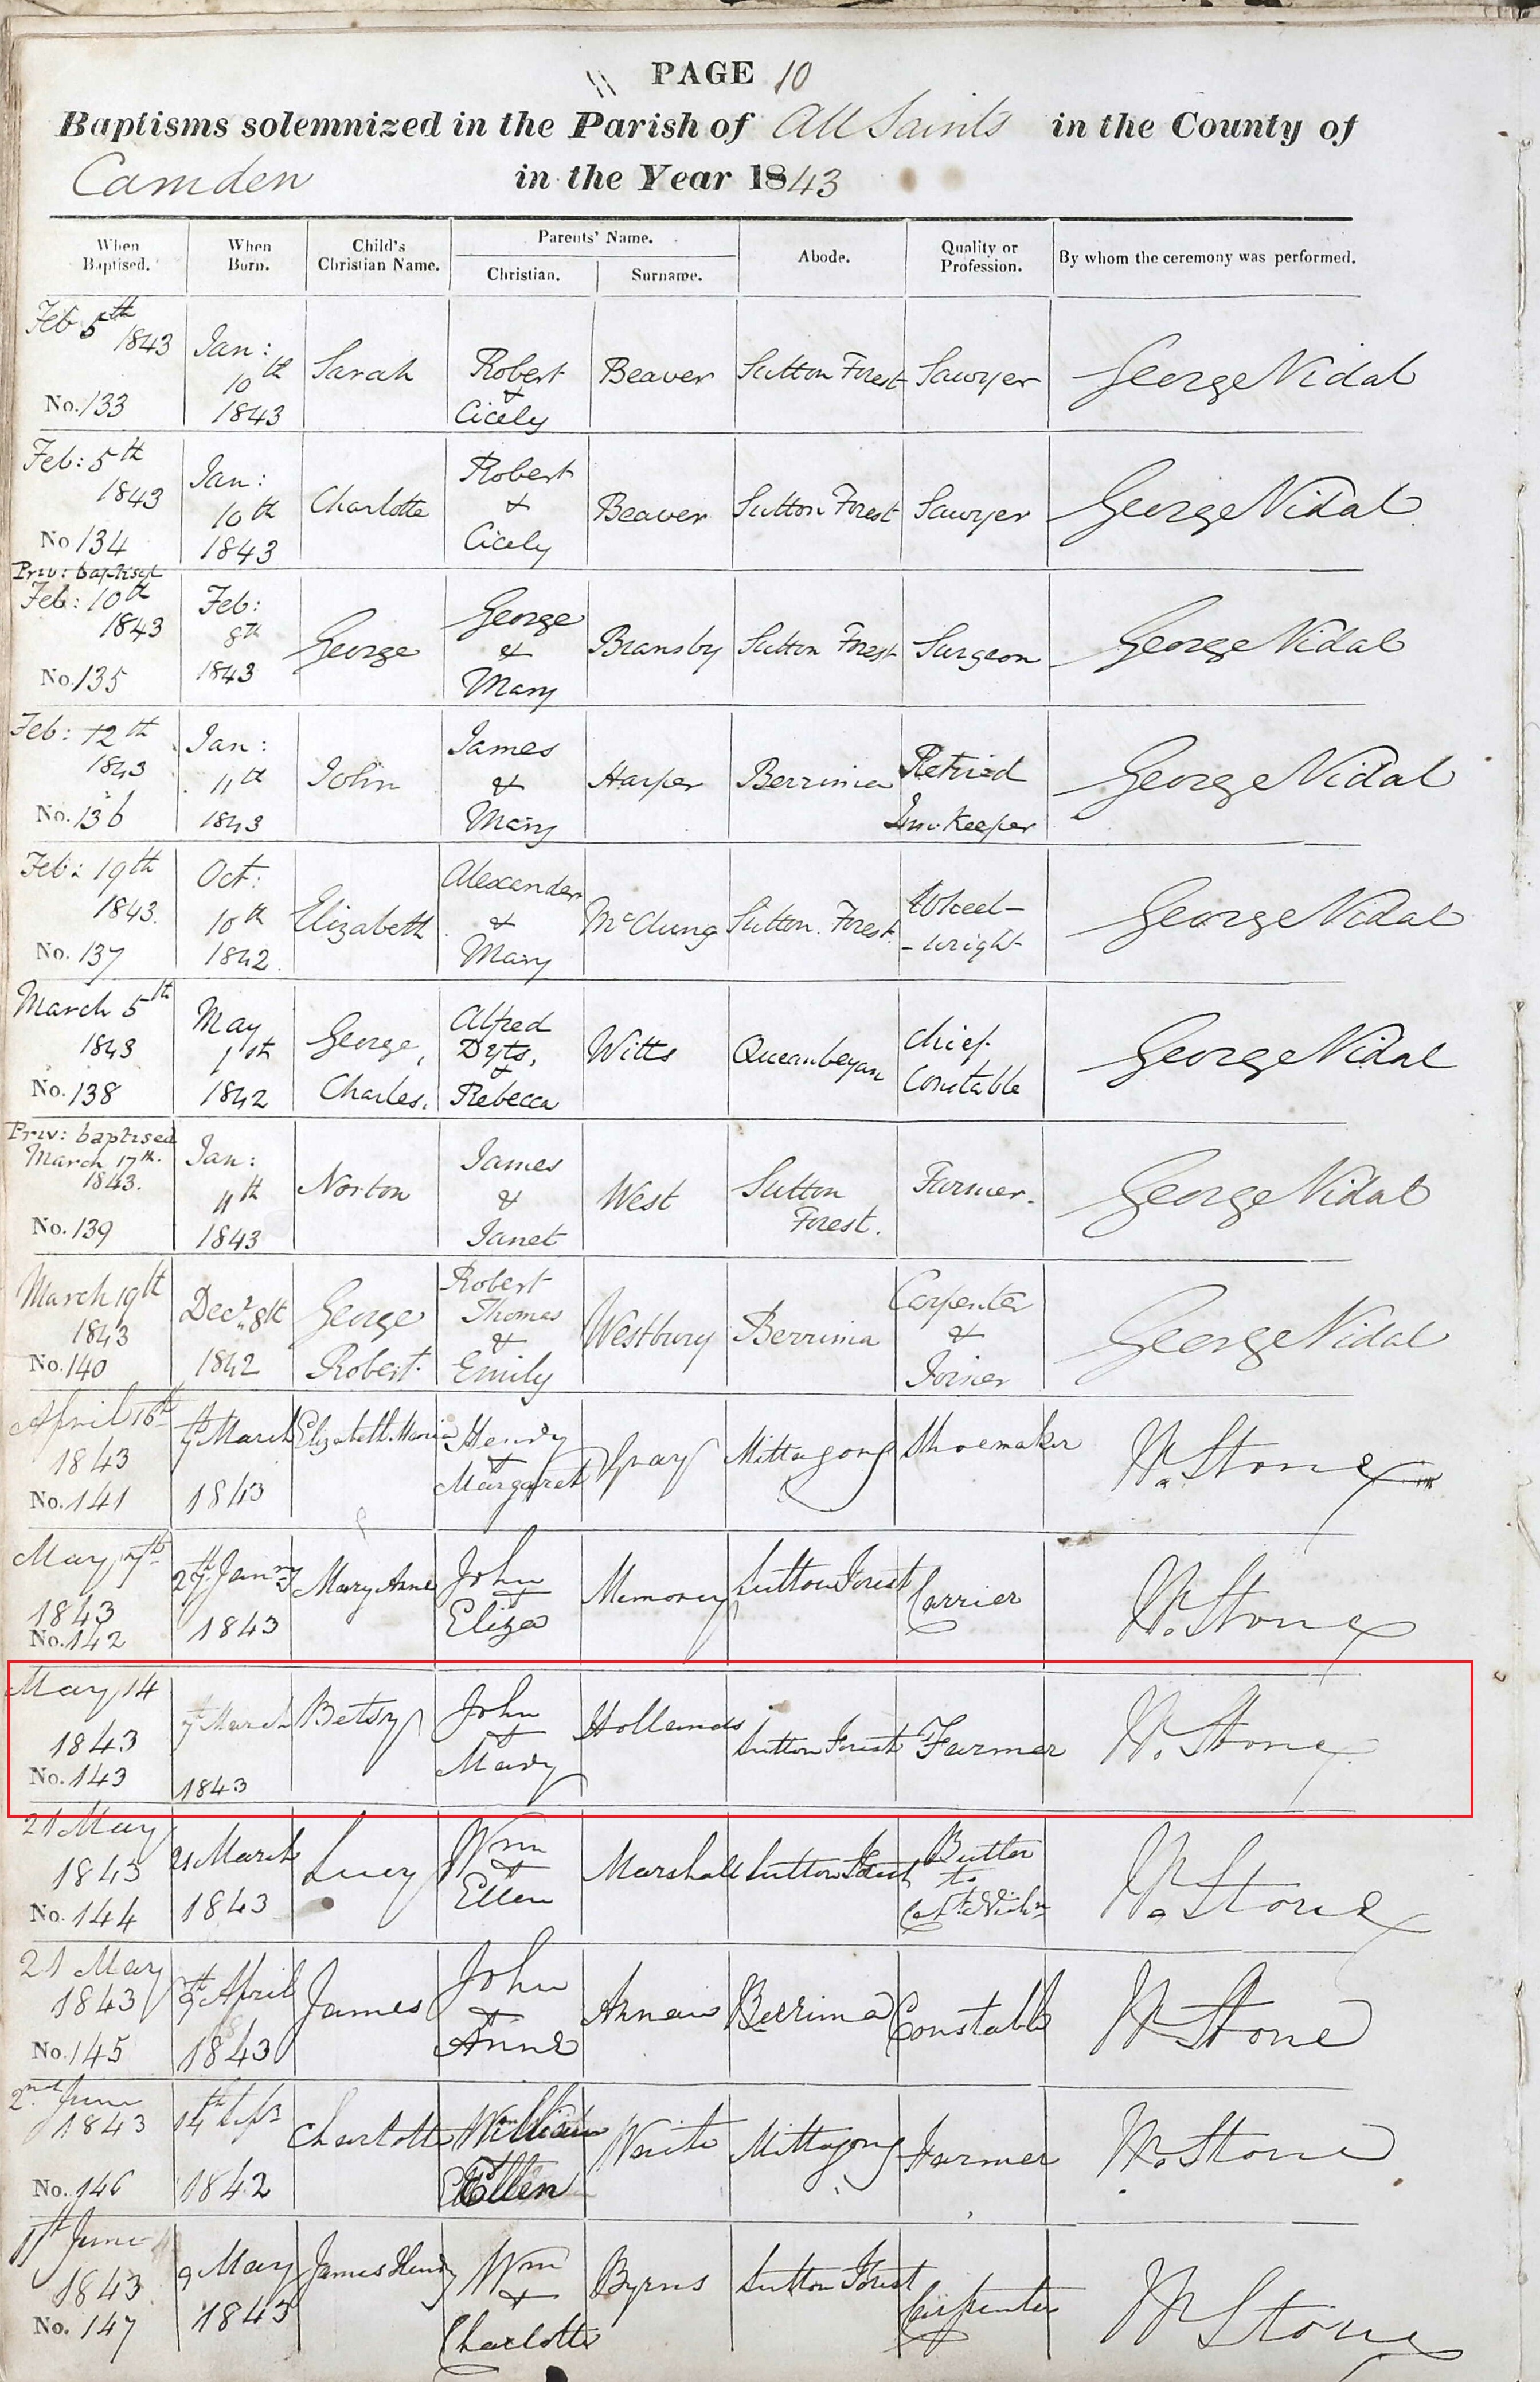 PAGE 10
Baptisms solemnized in the Parish of All Saints in the County of
Camden in the Year 1843
When Baptised. When Born. Child's Christian Name. Parents' Name. Christian. Surname. Abode. Quality or Profession. By whom the ceremony was performed.
Feb 5th 1843 No. 133 Jan: 10th 1843 Sarah Robert & Cicely Beaver Sutton Forest Sawyer George Vidal
Feb: 5th 1843 No 134 Jan: 10th 1843 Charlotte Robert & Cicely Beaver Sutton Forest Sawyer George Vidal
Priv: baptised Feb: 10th 1843 No. 135 Feb: 8th 1843 George George & Mary Bransby Sutton Forest Surgeon George Vidal
Feb: 12th 1843 No. 136 Jan: 11th 1843 John James & Mary Harper Berrima Retired Inn-Keeper George Vidal
Feb: 19th 1843. No. 137 Oct: 10th 1842. Elizabeth Alexander & Mary McClung Sutton. Forest. Wheel- -wright George Vidal
March 5th 1843 No. 138 May 1st 1842 George, Charles. Alfred Dyts, & Rebecca Witts Queanbeyan Chief Constable George Vidal
Priv: baptised March 17th. 1843. No. 139 Jan: 11th 1843 Norton James & Janet West Sutton Forest. Farmer. George Vidal
March 19th 1843 No. 140 Decr 8th 1842 George Robert. Robert Thomas & Emily Westbury Berrima Carpenter & Joiner George Vidal
April 16th 1843 No. 141 7th March 1843 Elizabeth Maria Henry & Margaret Gray Mittagong Shoemaker W. Stone
May 7th 1843 No. 142 27th Janry 1843 Mary Anne John & Eliza Memorey Sutton Forest Carrier W. Stone
May 14 1843 No. 143 7th March 1843 Betsy John & Mary Hollands Sutton Forest Farmer W. Stone
21 May 1843 No. 144 21 March 1843 Lucy Wm & Ellen Marshall Sutton Forest Butler to W. Stone
21 May 1843 No. 145 9th April 1843 James John & Anne Berrima Constable W Stone
2nd June 1843 No. 146 14th Sepr 1842 Charlotte William & Ellen Mittagong Farmer W. Stone
June 1843 No. 147 9 May 1843 James Henry Wm & Charlotte Byrns Sutton Forest Carpenter W Stone